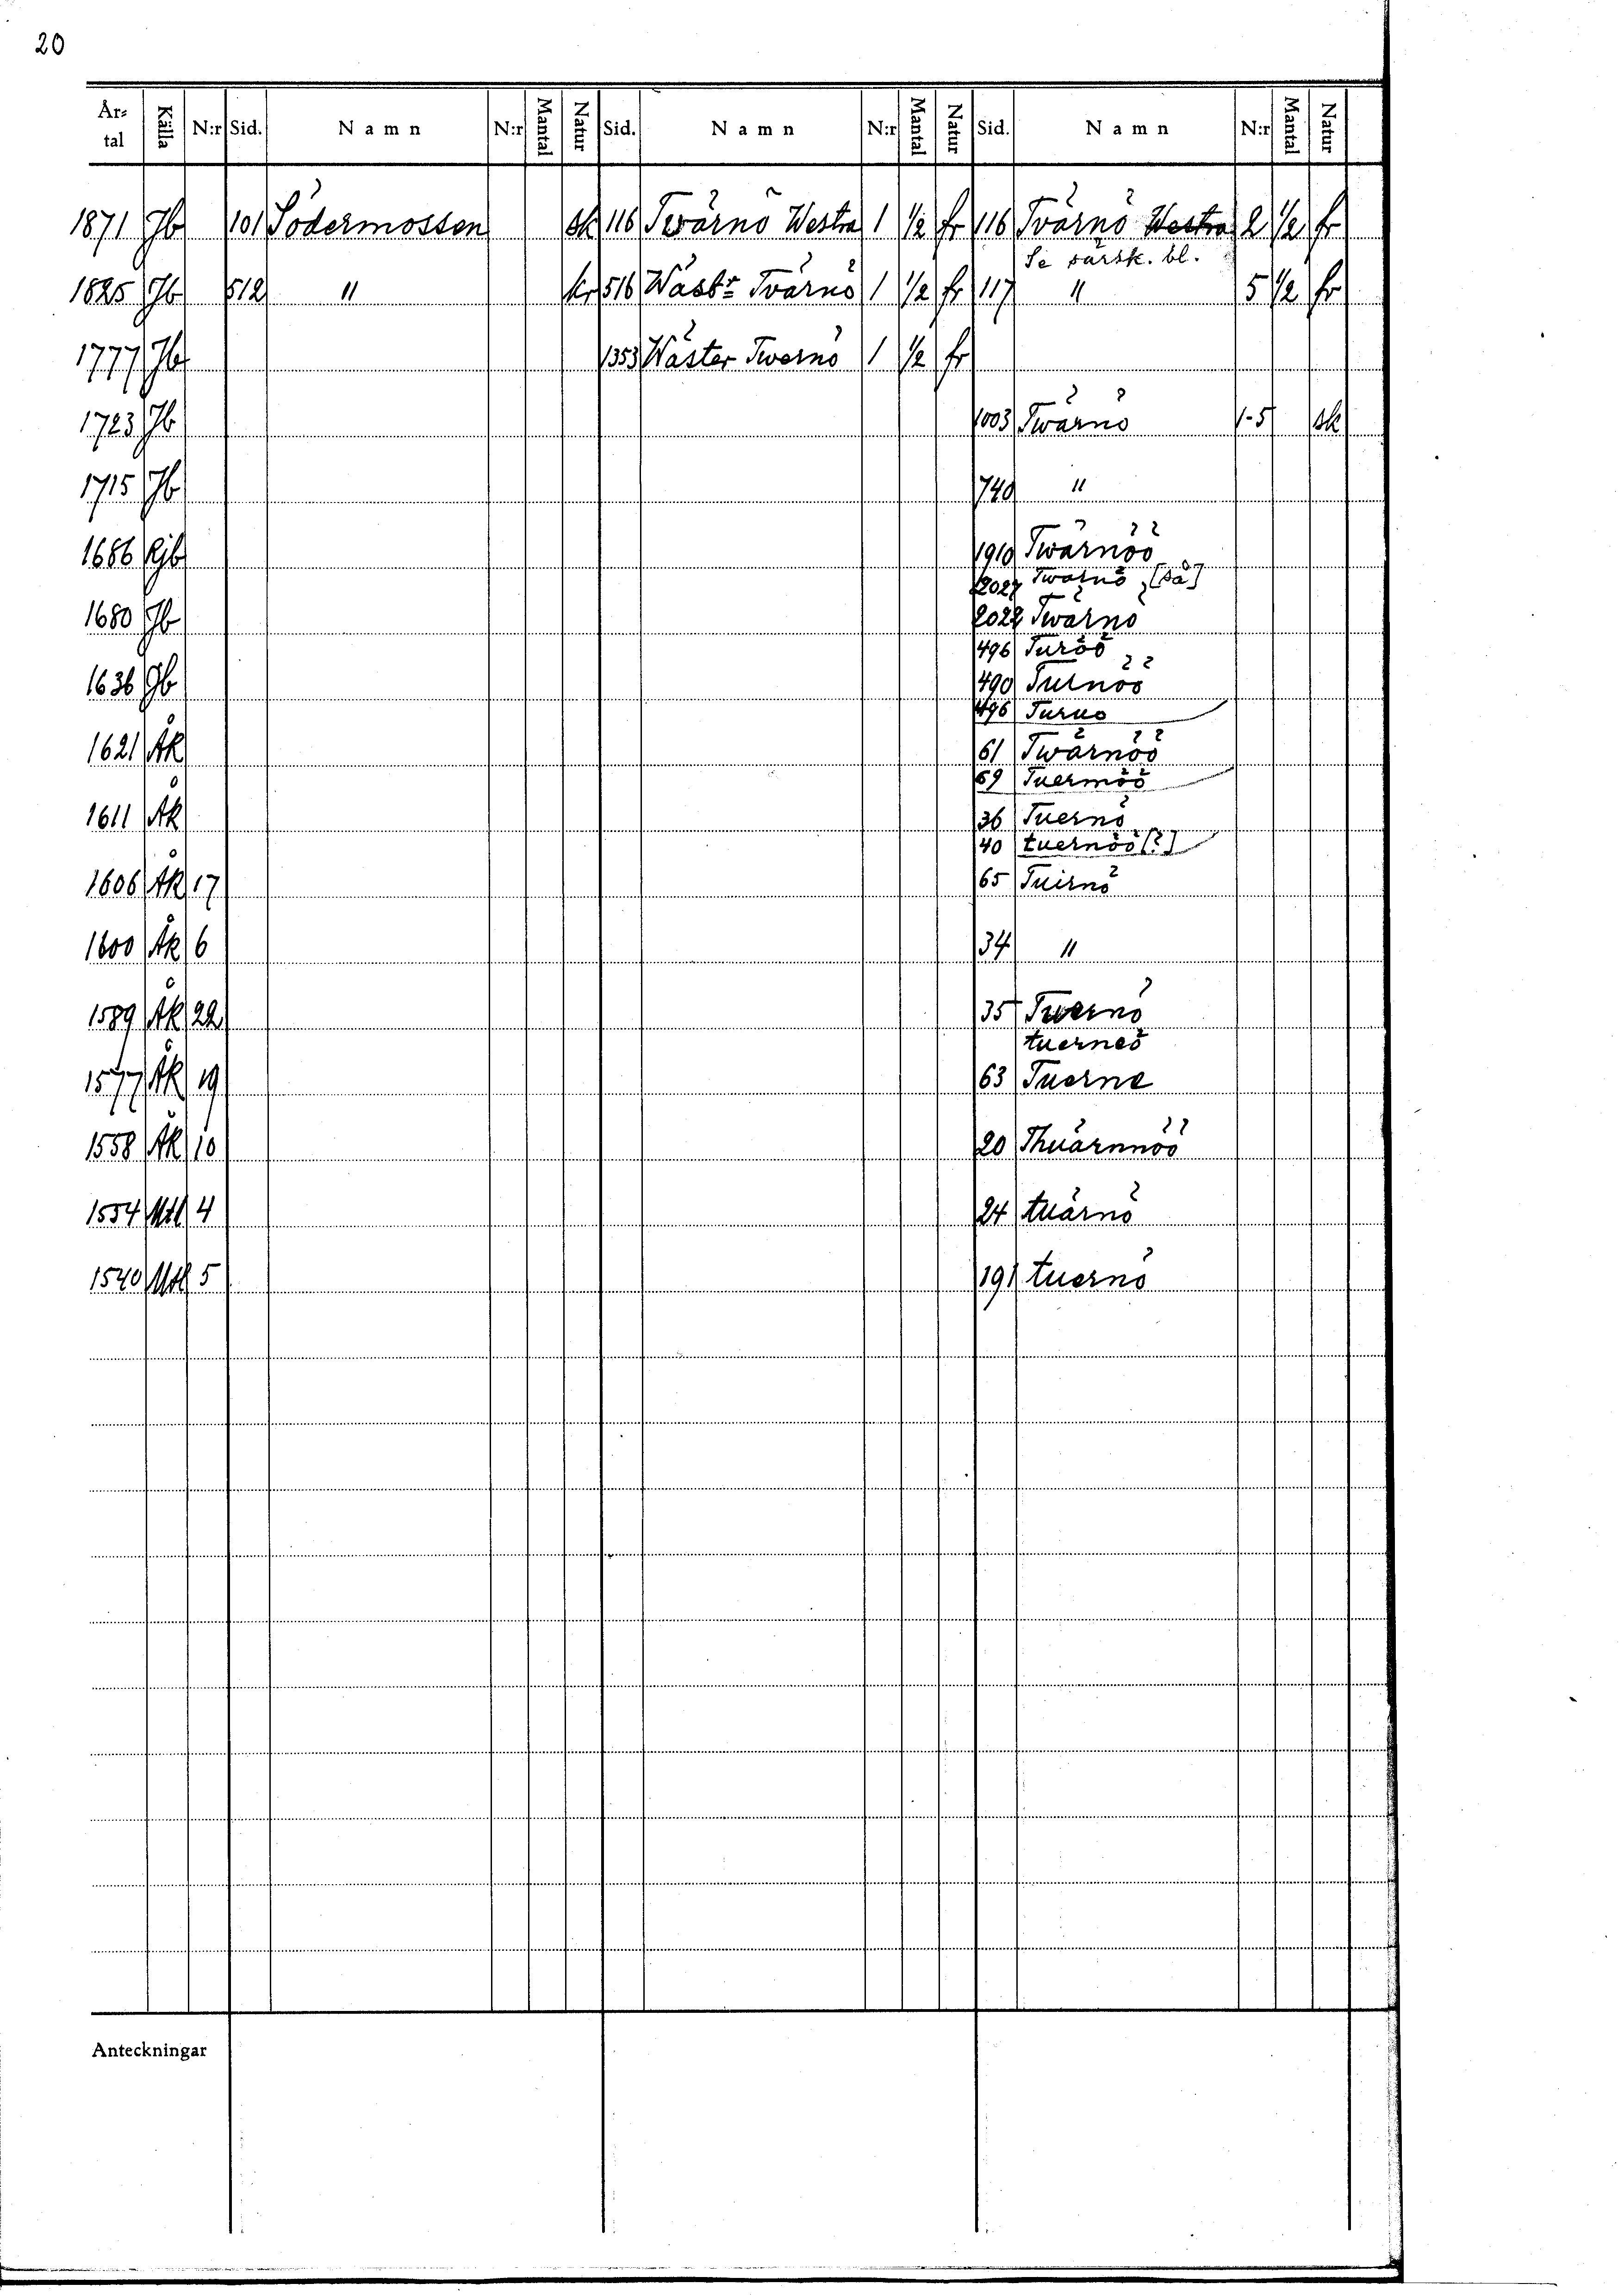 20
År-tal Källa N:r Sid. Namn N:r Mantal Natur Sid. Namn N:r Mantal Natur Sid. Namn N:r Mantal Natur
1871 Jb 101 Södermossen sk 116 Tvärnö Westra 1 1/2 fr 116 Tvärnö Westra 2 1/2 fr
Se särsk. bl.
1825 Jb 512 " kr 516 Wäsbr Tvärnö 1 1/2 fr 117 " 5 1/2 fr
1777 Jb 1353 Wäster Twernö 1 1/2 fr
1723 Jb 1003 Twärnö 1-5 sk
1715 Jb 740 "
1686 Rjb 1910 Twärnöö
2027 Twarnö [så]
1680 Jb 2022 Twärnö
496 Turöö
1636 Jb 490 Tulnöö
496 Turno
1621 ÅK 61 Twärnöö
69 Tuermöö
1611 ÅK 36 Tuernö
40 tuernöö [?]
1606 ÅK 17 65 Tuirnö
1600 ÅK 6 34 "
1589 ÅK 22 35 Twernö
tuerneö
1577 ÅK 19 63 Tuerne
1558 ÅK 10 20 Thuärnnöö
1554 Mtl 4 24 tuärnö
1540 Mtl 5 191 tuernö
Anteckningar